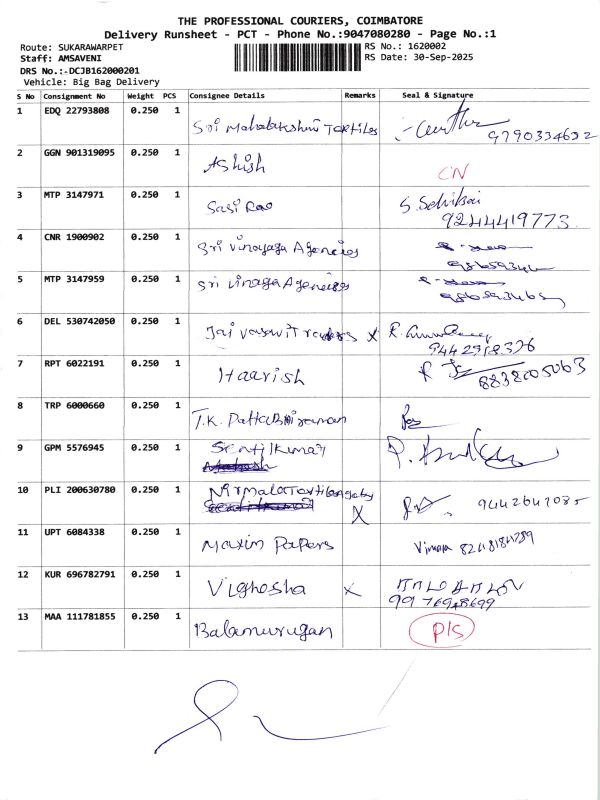 THE PROFESSIONAL COURIERS, COIMBATORE
Delivery Runsheet - PCT - Phone No.:9047080280 - Page No.:1
Route: SUKARAWARPET
RS No.: 1620002
Staff: AMSAVENI
RS Date: 30-Sep-2025
DRS No.:-DCJB162000201
Vehicle: Big Bag Delivery
S No Consignment No Weight PCS Consignee Details Remarks Seal & Signature
1 EDQ 22793808 0.250 1 Sri Mahalakshmi Textiles 9790334632
2 GGN 901319095 0.250 1 Ashish CN
3 MTP 3147971 0.250 1 Sasi Rao S. 9244419773
4 CNR 1900902 0.250 1 Sri Vinayaga Agencies
5 MTP 3147959 0.250 1 Sri Vinaga Agencies
6 DEL 530742050 0.250 1 Jai Vasavi Traders X R. 9442318376
7 RPT 6022191 0.250 1 Haarish 8838205063
8 TRP 6000660 0.250 1 T.K. PattaBiraman
9 GPM 5576945 0.250 1 Sentilkumar
10 PLI 200630780 0.250 1 Nirmala Textiles X
11 UPT 6084338 0.250 1 Maxim Papers
12 KUR 696782791 0.250 1 Vighosha X 9976948699
13 MAA 111781855 0.250 1 Balamurugan P/S